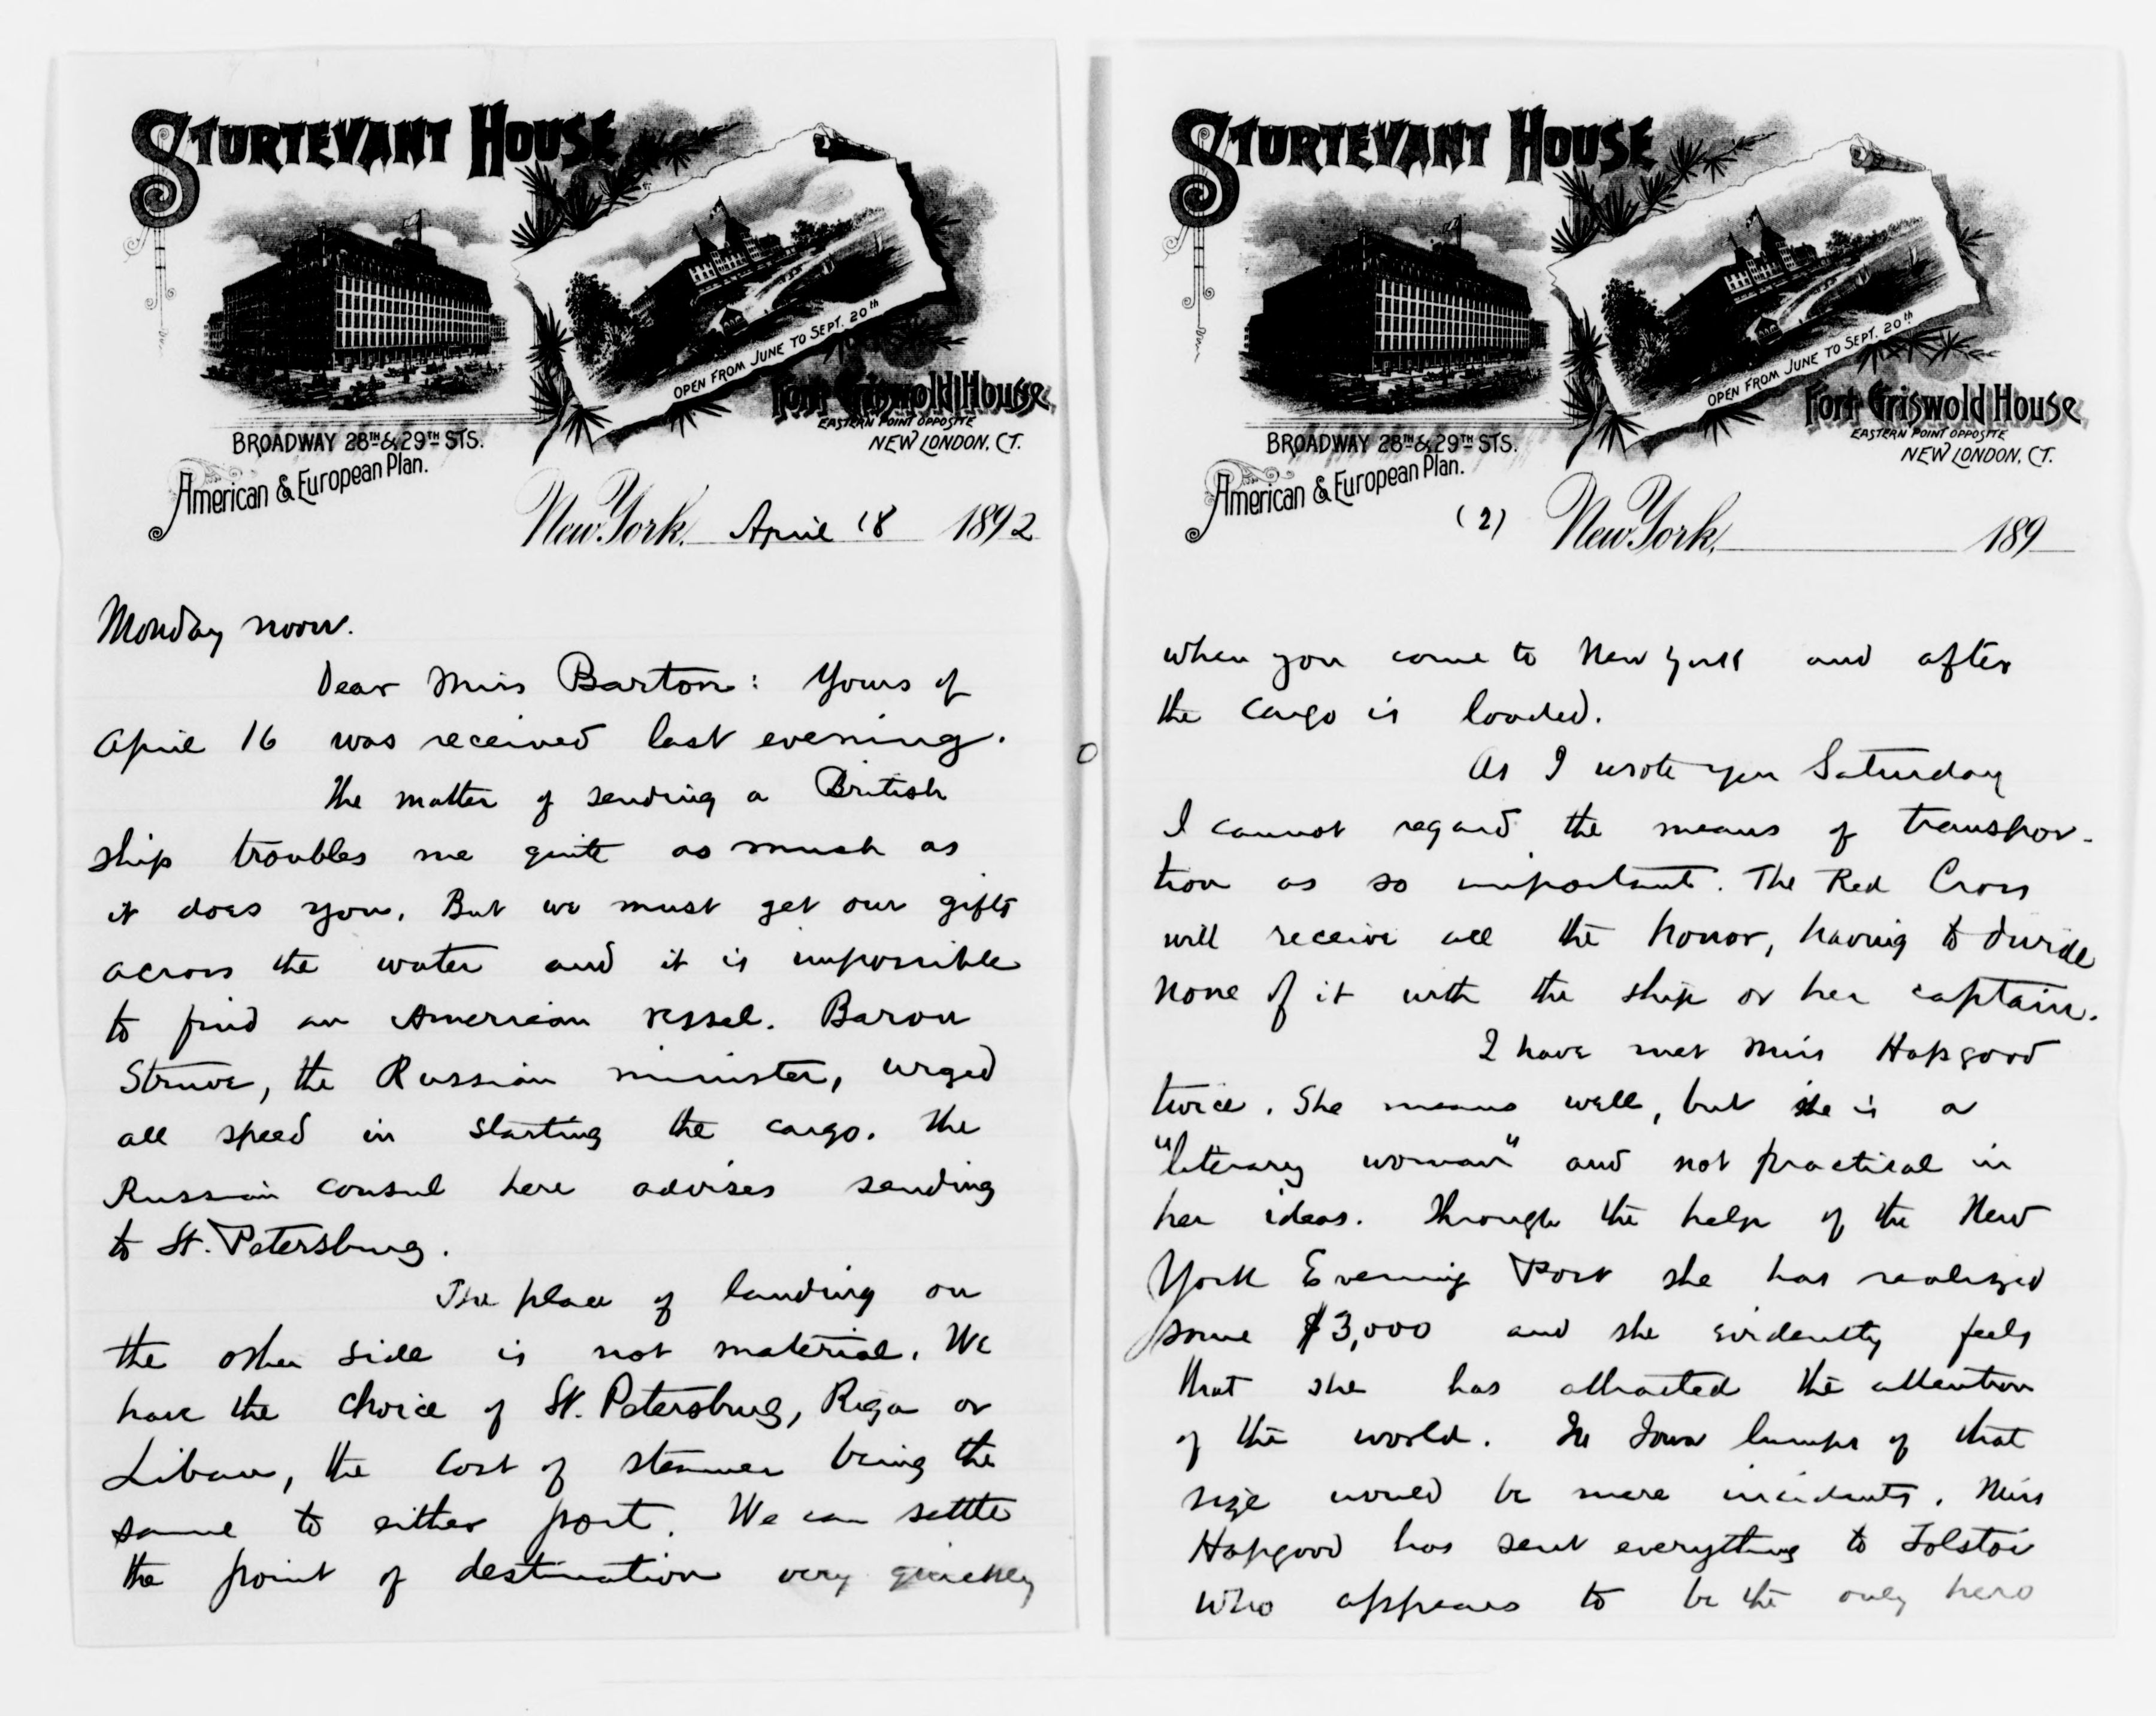 STURTEVANT HOUSE
OPEN FROM JUNE TO SEPT. 20th
Fort Griswold House
EASTERN POINT OPPOSITE
NEW LONDON, CT.
BROADWAY 28TH & 29TH STS.
American & European Plan.
New York, April 18 1892
Monday noon.
Dear Miss Barton: Yours of
April 16 was received last evening.
The matter of sending a British
ship troubles me quite as much as
it does you. But we must get our gifts
across the water and it is impossible
to find an American vessel. Baron
Struve, the Russian minister, urged
all speed in starting the cargo. The
Russian consul here advises sending
to St. Petersburg.
The place of landing on
the other side is not material. We
have the choice of St. Petersburg, Riga or
Libau, the cost of steamer being the
same to either port. We can settle
the point of destination very quickly
STURTEVANT HOUSE
OPEN FROM JUNE TO SEPT. 20th
Fort Griswold House
EASTERN POINT OPPOSITE
NEW LONDON, CT.
BROADWAY 28TH & 29TH STS.
American & European Plan.
(2) New York, 189
when you come to New York and after
the cargo is loaded.
As I wrote you Saturday
I cannot regard the means of transpor-
tion as so important. The Red Cross
will receive all the honor, having to divide
none of it with the ship or her captain.
I have met Miss Hapgood
twice. She means well, but she is a
"literary woman" and not practical in
her ideas. Through the help of the New
York Evening Post she has realized
some $3,000 and she evidently feels
that she has attracted the attention
of the world. In Iowa lumps of that
size would be mere incidents. Miss
Hapgood has sent everything to Tolstoi
who appears to be the only hero